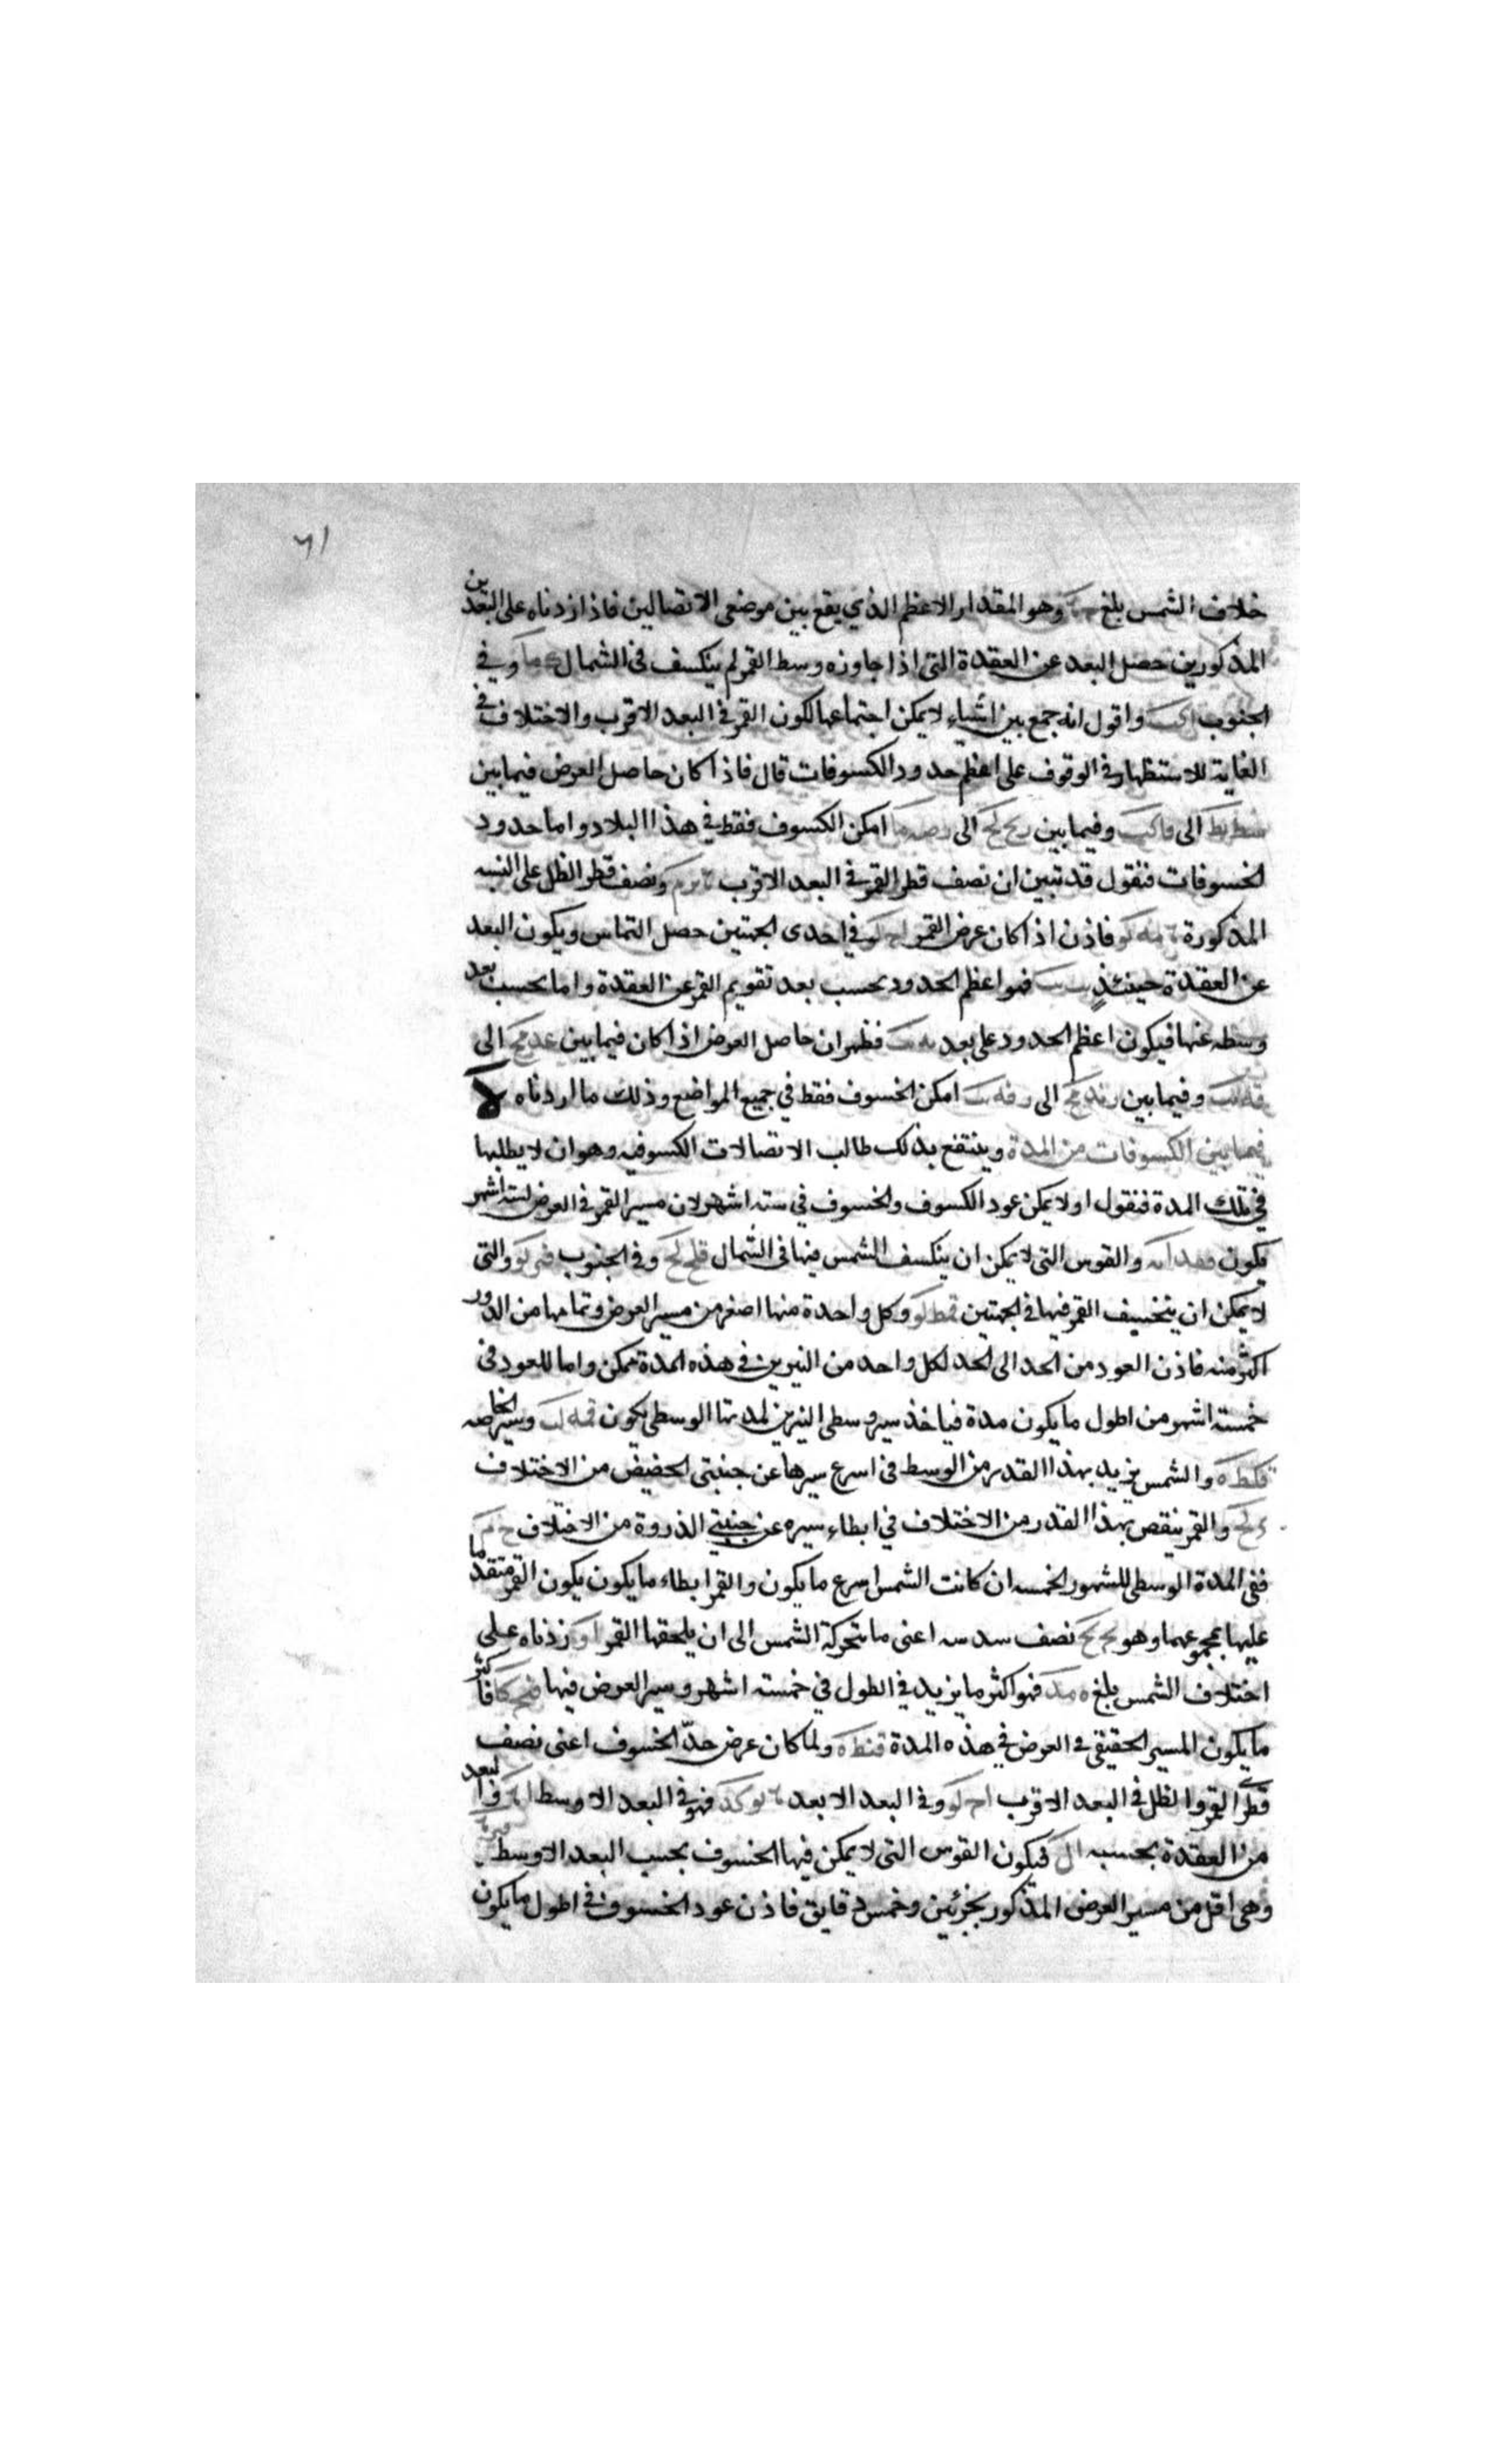 ٦١
خلاف الشمس بلغ وهو المقدار الاعظم الذي يقع بين موضعى الاتصالين فاذا زدناه على البعدين
المذكورين حصل البعد عن العقدة التى اذا جاوزه وسط القمر لم ينكسف فى الشمال وفي
الجنوب واقول انه جمع بين اشياء لا يمكن اجتماعها لكون القمر في البعد الاقرب والاختلاف في
الغاية للاستظهار في الوقوف على اعظم حدود الكسوفات قال فاذا كان حاصل العرض فيما بين
الى وفيما بين الى امكن الكسوف فقط في هذا البلاد واما حدود
الخسوفات فنقول قد تبين ان نصف قطر القمر في البعد الاقرب ونصف قطر الظل على النسبه
المذكورة فاذن اذا كان عرض القمر في احدى الجهتين حصل التماس ويكون البعد
عن العقدة حينئذٍ فهو اعظم الحدود بحسب بعد تقويم القمر عن العقدة واما بحسب بعد
وسطه عنها فيكون اعظم الحدود على بعد فظهر ان حاصل العرض اذا كان فيما بين الى
وفيما بين الى امكن الخسوف فقط في جميع المواضع وذلك ما اردناه لا
فيما بين الكسوفات من المدة وينتفع بذلك طالب الاتصالات الكسوفيه وهو ان لا يطلبها
في تلك المدة فنقول اولا يمكن عود الكسوف والخسوف في سته اشهر لان مسير القمر في العرض لسته اشهر
يكون والقوس التى لا يمكن ان ينكسف الشمس فيها فى الشمال قلح لح وفى الجنوب والتى
لا يمكن ان ينخسف القمر فيها في الجهتين قمط لو وكل واحدة منها اصغر من مسير العرض وتمامها من الدور
اكثر منه فاذن العود من الحد الى الحد لكل واحد من النيرين في هذه المدة ممكن واما للعود فى
خمسته اشهر من اطول ما يكون مدة فياخذ سير وسطى النيرين لمدتها الوسطى يكون قمه لب وسير الخاصه
قكط ه والشمس يزيد بهذا القدر من الوسط فى اسرع سيرها عن جنبتى الحضيض من الاختلاف
والقمر ينقص بهذا القدر من الاختلاف في ابطاء سيره عن جنبتي الذروة من الاختلاف ح م
ففى المدة الوسطى للشهور الخمسه ان كانت الشمس اسرع ما يكون والقمر ابطاء ما يكون يكون القمر متقدما
عليها بمجموعهما وهو نصف سدسه اعنى ما يتحركة الشمس الى ان يلحقها القمر زدناه على
اختلاف الشمس بلغ فهو اكثر ما يزيد في الطول في خمسته اشهر وسير العرض فيها فاكثر
ما يكون المسير الحقيقى في العرض في هذه المدة قنط ه ولما كان عرض حدّ الخسوف اعنى نصف
قطرى القمر والظل في البعد الاقرب ا ح لو وفى البعد الابعد فهو في البعد الاوسط والبعد
من العقدة بحسبه فيكون القوس التى لا يمكن فيها الخسوف بحسب البعد الاوسط
وهى اقل من مسير العرض المذكور بجزئين وخمس دقايق فاذن عود الخسوف في اطول ما يكون